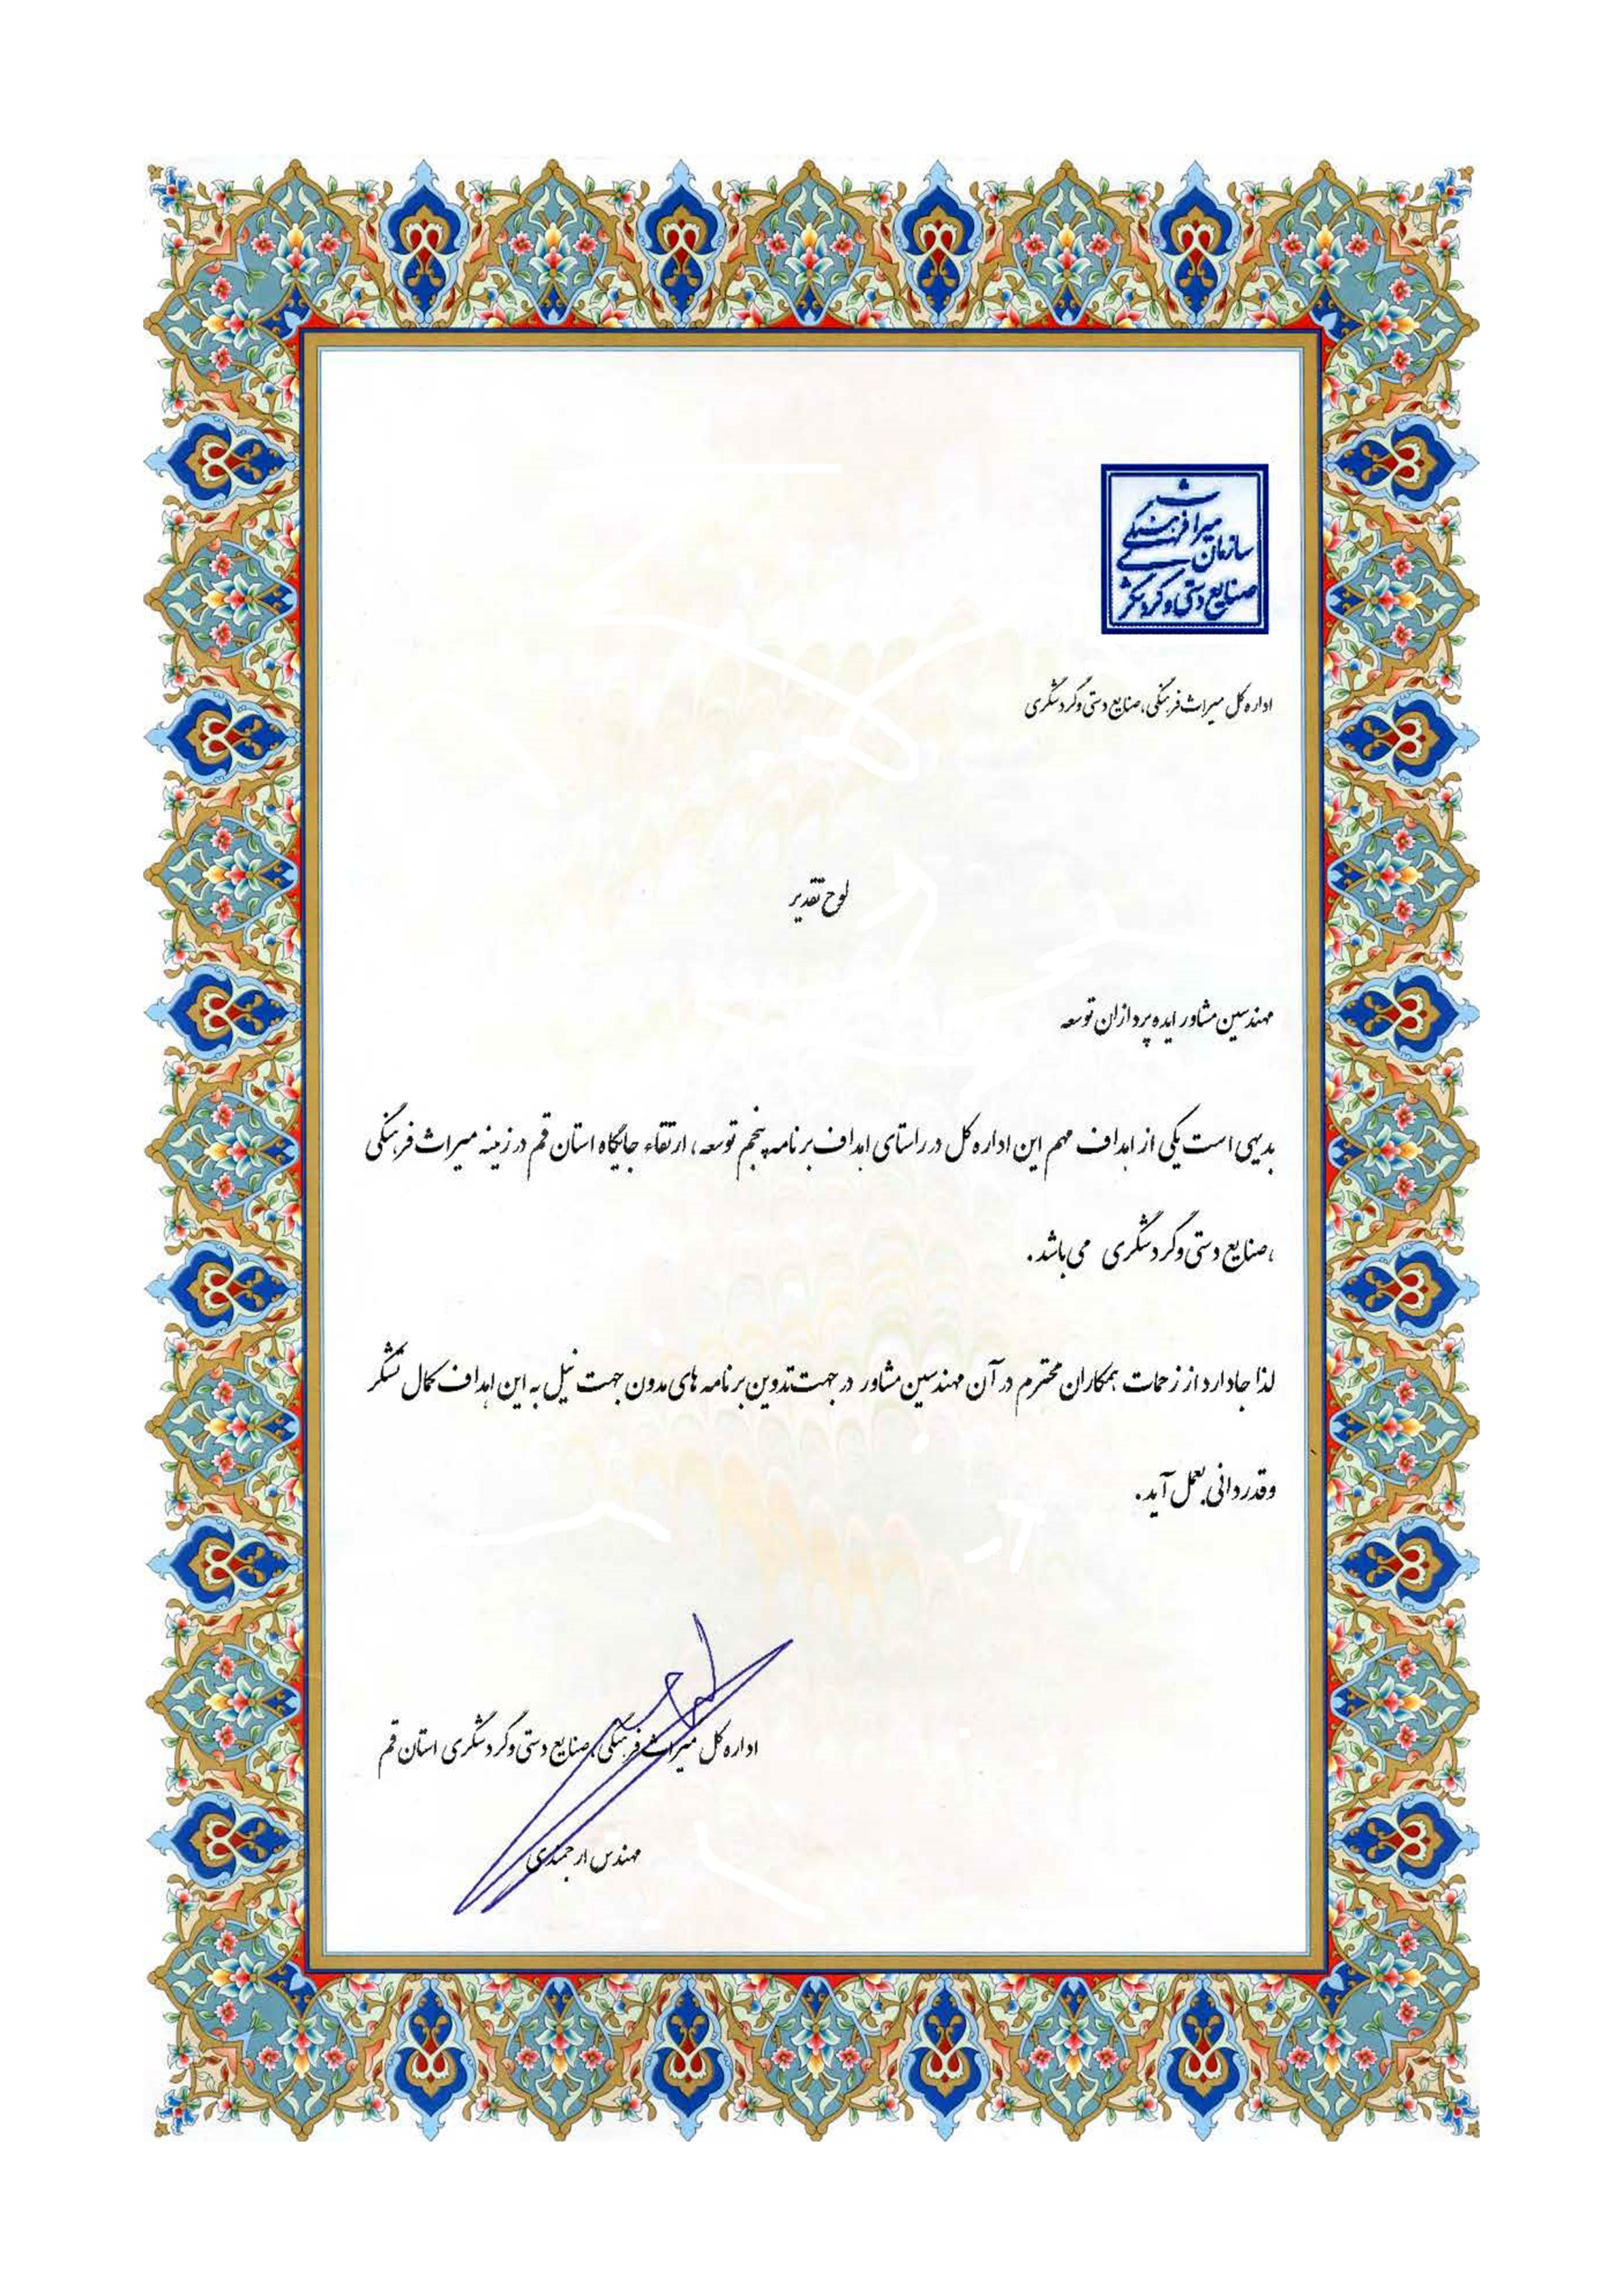 سازمان میراث فرهنگی
صنایع دستی و گردشگری
اداره کل میراث فرهنگی، صنایع دستی و گردشگری
لوح تقدیر
مهندسین مشاور ایده پردازان توسعه
بدیهی است یکی از اهداف مهم این اداره کل در راستای اهداف برنامه پنجم توسعه، ارتقاء جایگاه استان قم در زمینه میراث فرهنگی
،صنایع دستی و گردشگری می باشد.
لذا جا دارد از زحمات همکاران محترم در آن مهندسین مشاور در جهت تدوین برنامه های مدون جهت نیل به این اهداف کمال تشکر
و قدردانی بعمل آید.
اداره کل میراث فرهنگی، صنایع دستی و گردشگری استان قم
مهندس ارجمندی